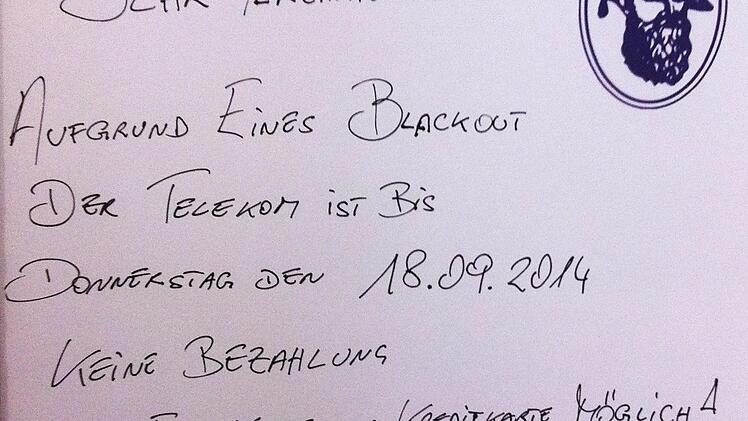 Aufgrund Eines Blackout
Der Telekom ist Bis
Donnerstag den 18.09.2014
Keine Bezahlung
Kreditkarte Möglich!